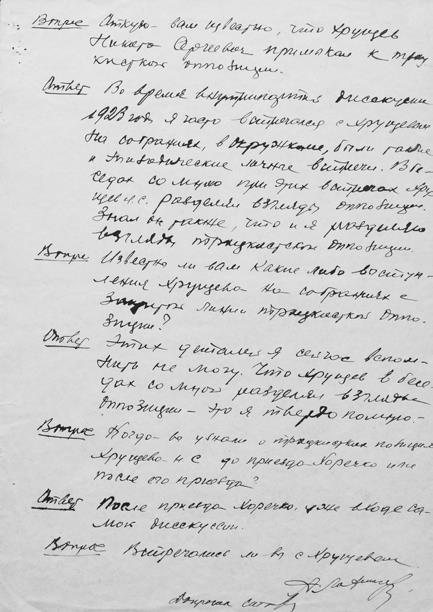 Вопрос Откуда вам известно, что Хрущев
Никита Сергеевич примыкал к троц
кисткой оппозиции.
Ответ Во время внутрипартий дискуссии
1923 года я часто встречался с Хрущевым
на собраниях, в окружкоме, были также
и эпизодические личные встречи. В бе
седах со мною при этих встречах Хру
щев Н.С. разделял взгляды оппозиции.
Знал он также, что и я разделяю
взгляды троцкистской оппозиции.
Вопрос Известно ли вам какие либо выступ
ления Хрущева на собраниях с
защитой линии троцкисткой оппо
зиции?
Ответ Этих деталей я сейчас вспом
нить не могу. Что Хрущев в бесе
дах со мной разделял взгляды
оппозиции – это я твердо помню.
Вопрос Когда вы узнали о троцкистких позициях
Хрущева Н С до приезда Харечко или
после его приезда?
Ответ После приезда Харечко, уже в ходе са
мой дискуссии.
Вопрос Встречались ли вы с Хрущевым
Допросил